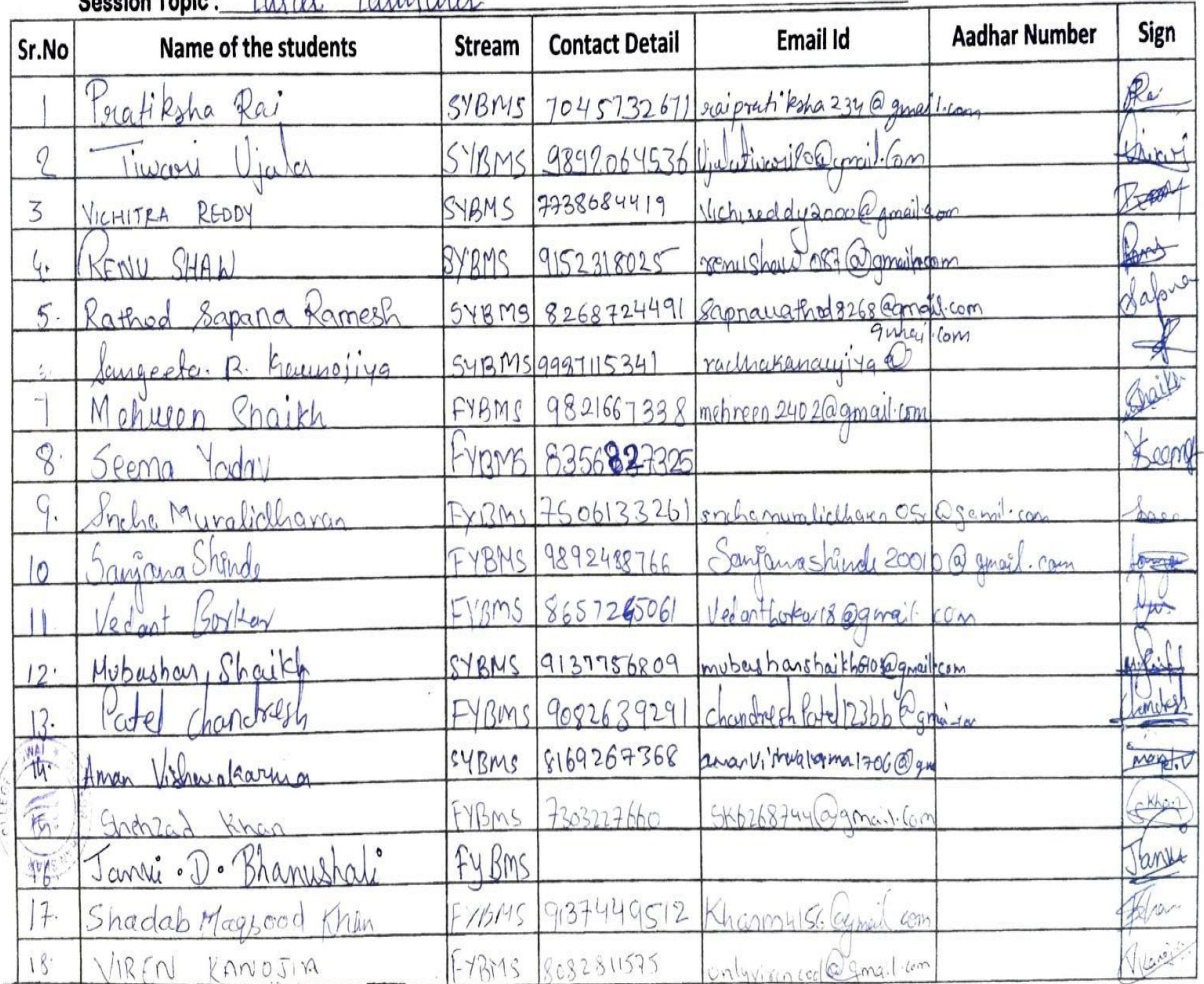 Session Topic :
Sr.No Name of the students Stream Contact Detail Email Id Aadhar Number Sign
1 Pratiksha Rai SYBMS 7045732671 raipratiksha234@gmail.com Rai
2 Tiwari Ujala SYBMS 9892064536 Tiwari
3 VICHITRA REDDY SYBMS 7738684419 Vichireddy2000@gmail.com
4. RENU SHAW SYBMS 9152318025 renushaw087@gmail.com
5. Rathod Sapana Ramesh SYBMS 8268724491 Sapnarathod8268@gmail.com Sapna
gmail.com
Sangeeta. R. Kannojiya SYBMS 9987115341 radhakanaujiya@
7 Mehreen Shaikh FYBMS 9821667338 mehreen2402@gmail.com Shaikh
8. Seema Yadav FYBMS 8356827325
9. Sneha Muralidharan FYBMS 7506133261 snehamuralidharan05@gemil.com
10 Sanjana Shinde FYBMS 9892488766 Sanjanashinde20010@gmail.com
11 Vedant Borkar FYBMS 8657265061 Vedantborkar18@gmail.com
12. Mubashar, Shaikh SYBMS 9137756809
13. Patel Chandresh FYBMS 9082639291 chandreshPatel123bb@gmail.com Chandresh
14. Aman Vishwakarma SYBMS 8169267368 amanvishwakarma1706@gm
15. Shehzad Khan FYBMS 7303227660 SK6268744@gmail.com Khan
16. Janvi . D. Bhanushali FyBms Janvi
17. Shadab Maqsood Khan FYBMS 9137449512
18. VIREN KANOJIA FYBMS 8082811575